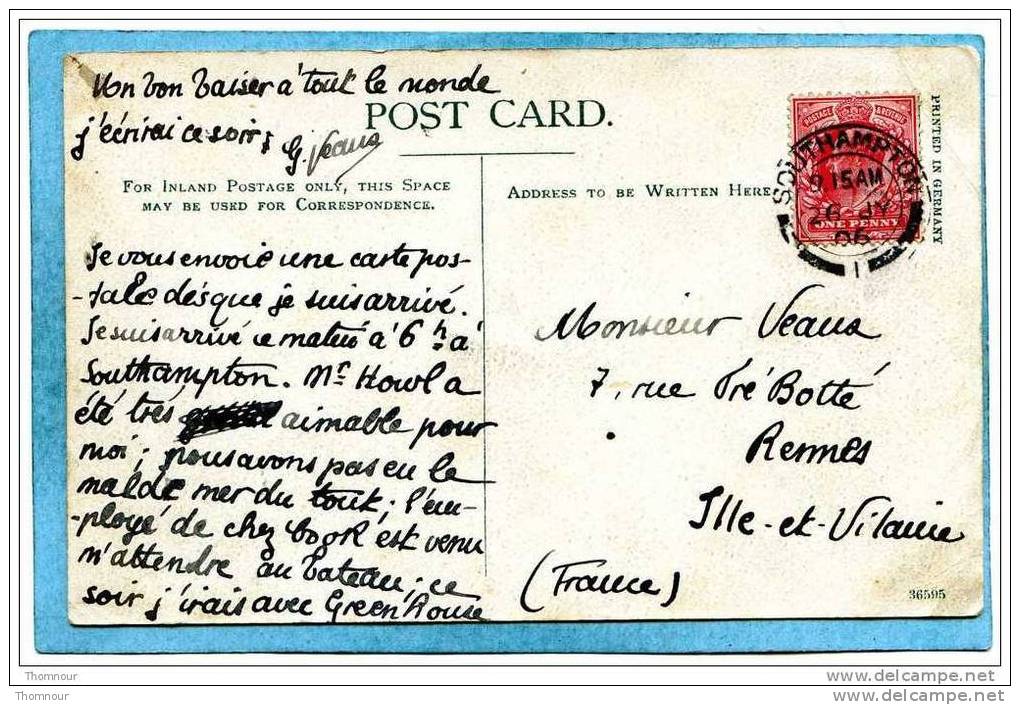 Un bon baiser à tout le monde
j'écrirai ce soir;
G. Veaux
POST CARD.
FOR INLAND POSTAGE ONLY, THIS SPACE
MAY BE USED FOR CORRESPONDENCE.
Je vous envoie une carte pos-
-tale dès que je suis arrivé.
Je suis arrivé ce matin à 6h à
Southampton. Mr Howl a
été très aimable pour
moi; nous avons pas eu le
mal de mer du tout; l'em-
-ployé de chez Cook est venu
m'attendre au bateau; ce
soir j'irais avec Green
ADDRESS TO BE WRITTEN HERE
POSTAGE & REVENUE
ONE PENNY
SOUTHAMPTON
9.15 AM
26 JY
06
1
PRINTED IN GERMANY
Monsieur Veaux
7, rue Pré Botté
Rennes
Ille-et-Vilaine
(France)
36595
Thomnour
Thomnour
www.delcampe.net
www.delcampe.net